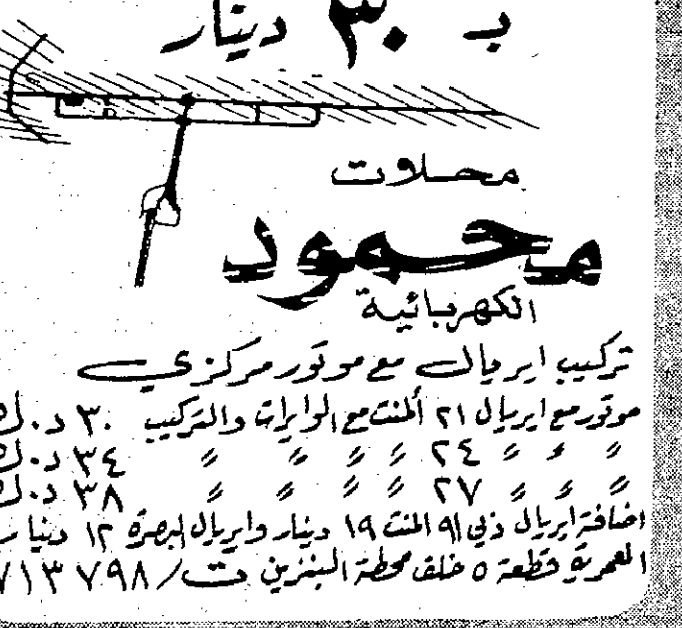 بـ ٣٠ دينار
محلات
محمود
الكهربائية
تركيب ايريال مع موتور مركزي
موتور مع ايريال ٢١ ألمنت مع الوايرات والتركيب ٣٠ د.ك
〃 〃 〃 ٢٤ 〃 〃 〃 〃 ٣٤ د.ك
〃 〃 〃 ٢٧ 〃 〃 〃 〃 ٣٨ د.ك
اضافة ايريال ذي ٩١ المنت ١٩ دينار وايريال لبصرة ١٢ دينار
العمرية قطعة ٥ خلف محطة البنزين ت/٧١٣٧٩٨